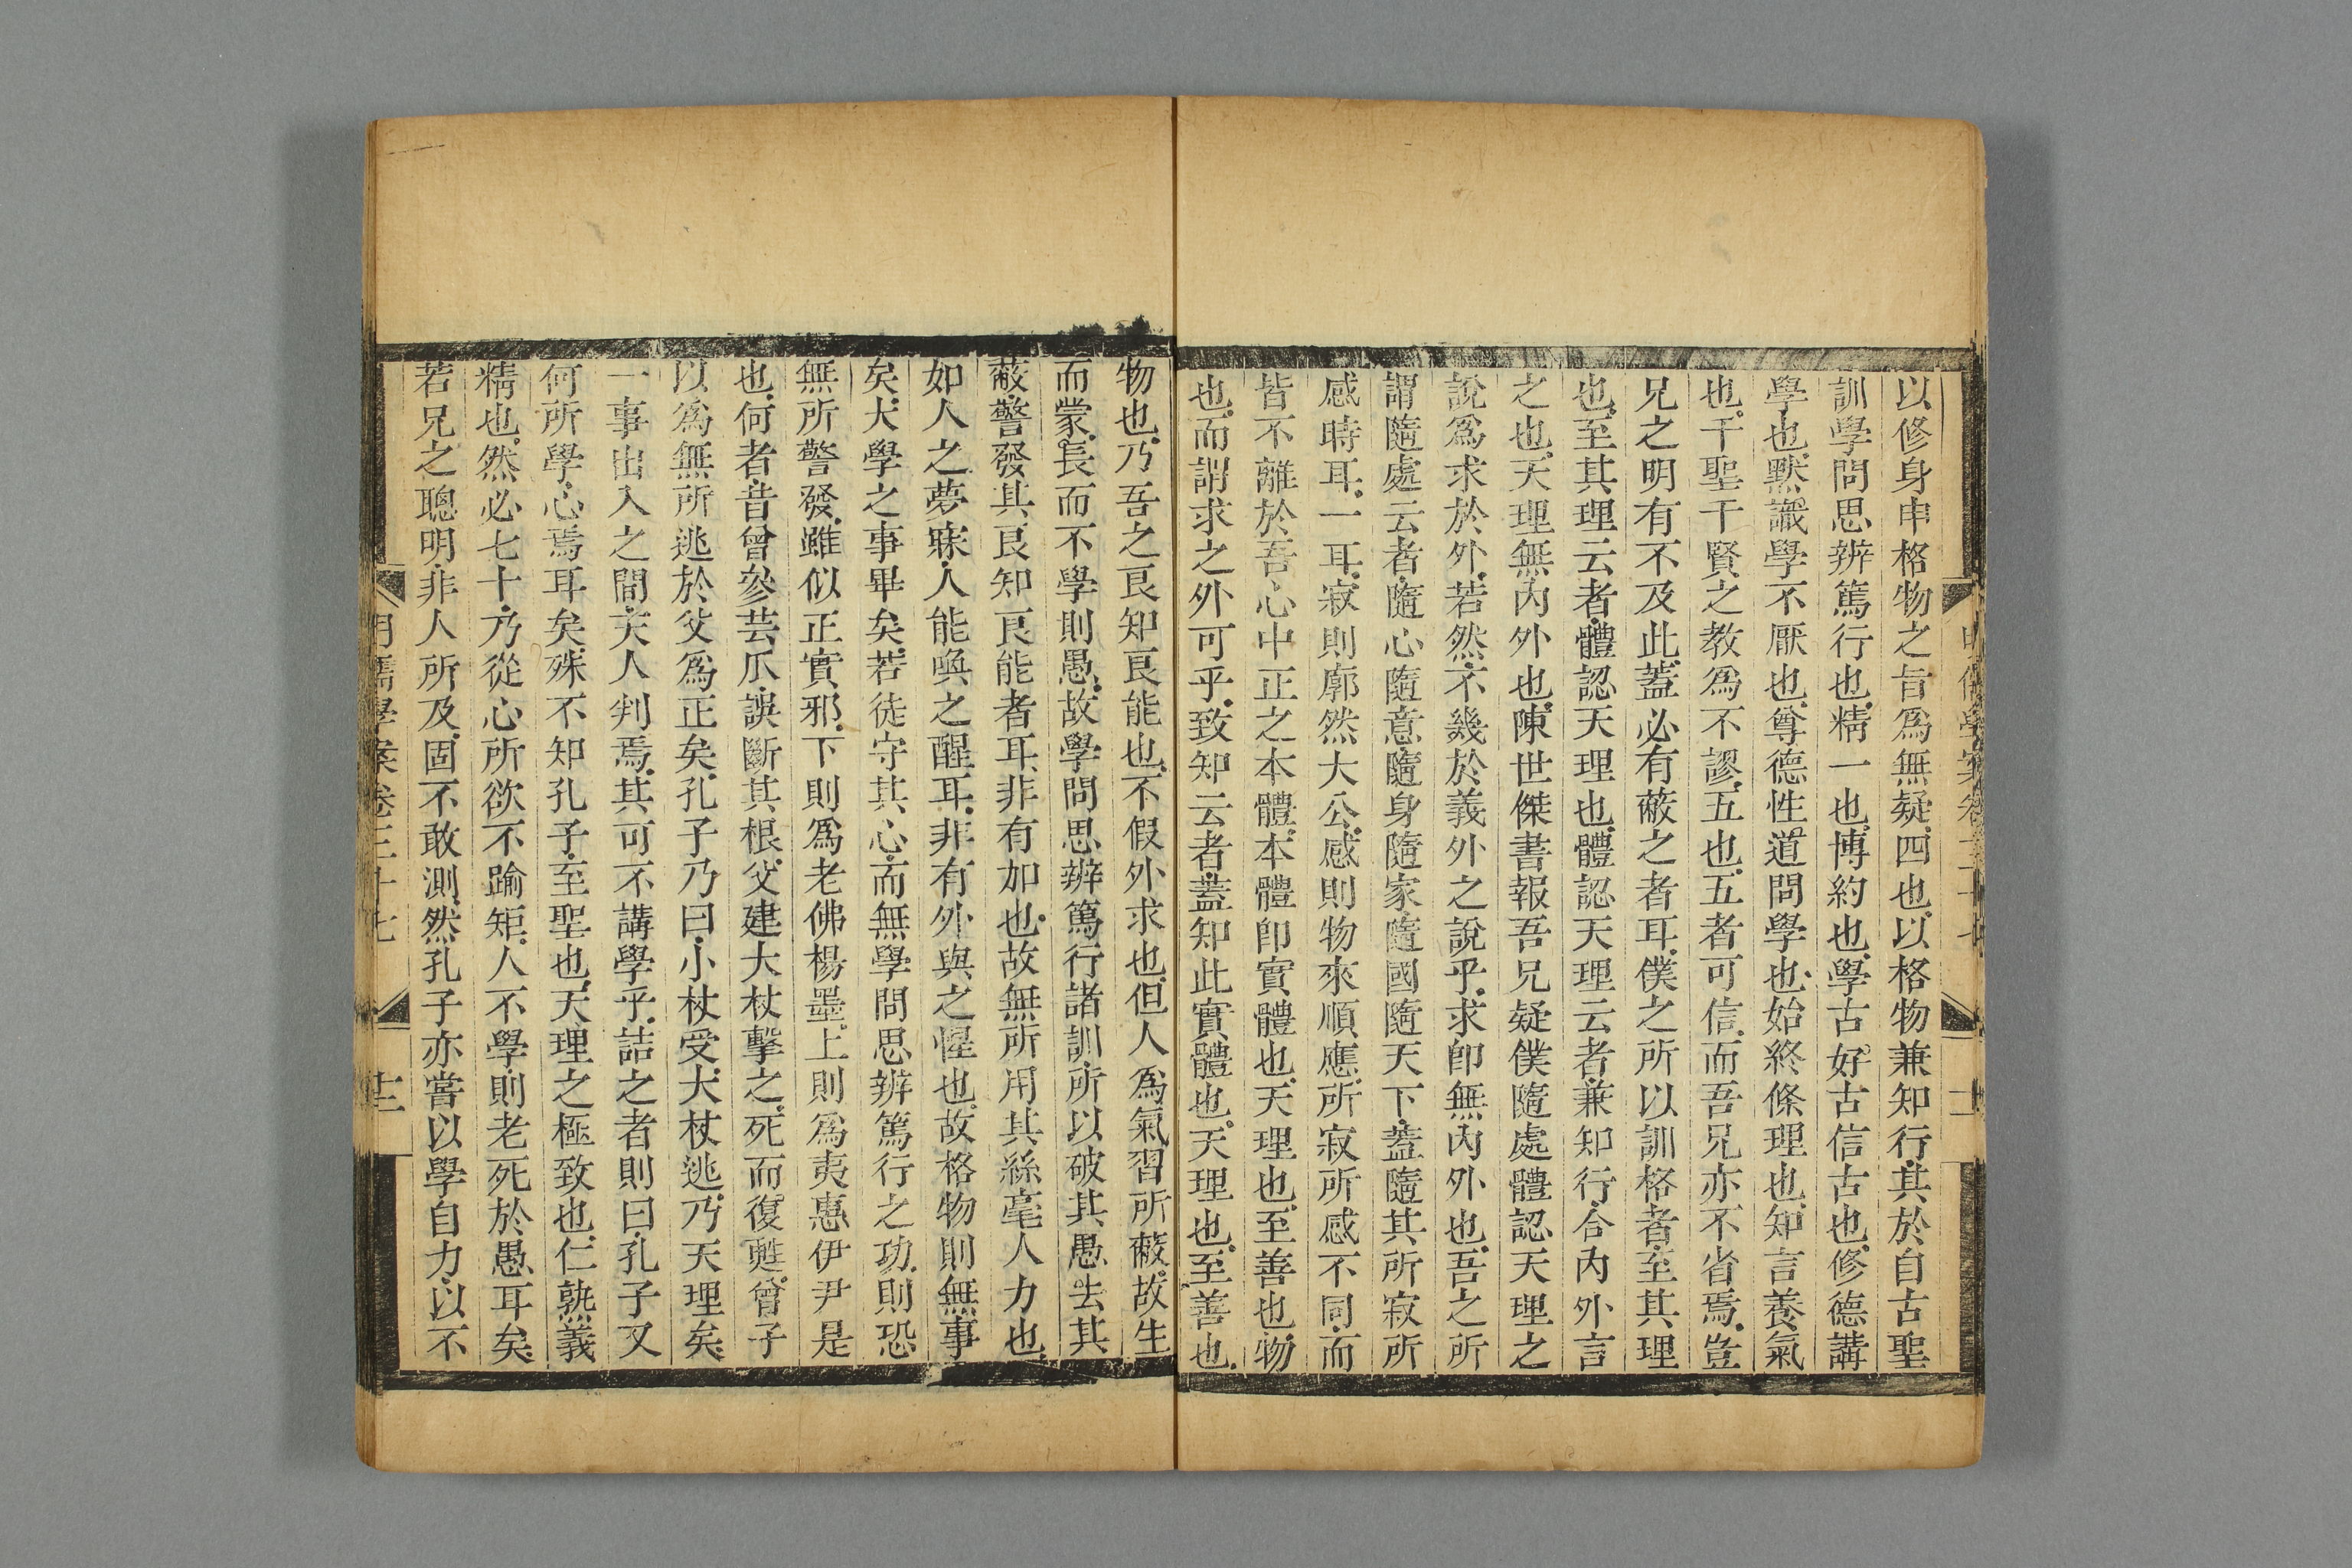 以修身申格物之旨爲無疑四也以格物兼知行其於自古聖
訓學問思辨篤行也精一也博約也學古好古信古也修德講
學也默識學不厭也尊德性道問學也始終條理也知言養氣
也千聖千賢之教爲不謬五也五者可信而吾兄亦不省焉豈
兄之明有不及此蓋必有蔽之者耳僕之所以訓格者至其理
也至其理云者體認天理也體認天理云者兼知行合內外言
之也天理無內外也陳世傑書報吾兄疑僕隨處體認天理之
說爲求於外若然不幾於義外之說乎求卽無內外也吾之所
謂隨處云者隨心隨意隨身隨家隨國隨天下蓋隨其所寂所
感時耳一耳寂則廓然大公感則物來順應所寂所感不同而
皆不離於吾心中正之本體本體卽實體也天理也至善也物
也而謂求之外可乎致知云者蓋知此實體也天理也至善也
物也乃吾之良知良能也不假外求也但人爲氣習所蔽故生
而蒙長而不學則愚故學問思辨篤行諸訓所以破其愚去其
蔽警發其良知良能者耳非有如也故無所用其絲毫人力也
如人之夢寐人能喚之醒耳非有外與之惺也故格物則無事
矣大學之事畢矣若徒守其心而無學問思辨篤行之功則恐
無所警發雖似正實邪下則爲老佛楊墨上則爲夷惠伊尹是
也何者昔曾參芸瓜誤斷其根父建大杖擊之死而復甦曾子
以爲無所逃於父爲正矣孔子乃曰小杖受大杖逃乃天理矣
一事出入之間天人判焉其可不講學乎詰之者則曰孔子又
何所學心焉耳矣殊不知孔子至聖也天理之極致也仁熟義
精也然必七十乃從心所欲不踰矩人不學則老死於愚耳矣
若兄之聰明非人所及固不敢測然孔子亦嘗以學自力以不
明儒學案卷三十七